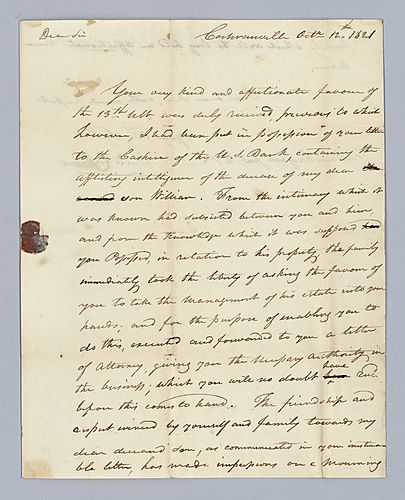 Dear Sir
Cochranville Octr. 12th. 1821
Your very kind and affectionate favour of
the 13th Ult was duly received previous to which
however, I had been put in possession of your letter
to the Cashier of the U.S. Bank, containing the
afflicting intelligence of the decease of my dear
son William. From the intimacy which it
was known had subsisted between you and him,
and from the knowledge which it was supposed had
you possessed, in relation to his property, the family
immediately took the liberty of asking the favour of
you to take the management of his estate into your
hands; and for the purpose of enabling you to
do this, executed and forwarded to you a letter
of Attorney, giving you the necessary authority in
the business, which you will no doubt have
before this comes to hand. The friendship and
respect evinced by yourself and family towards my
dear deceased son, as communicated in your inestima-
ble letter, has made impressions on a mourning